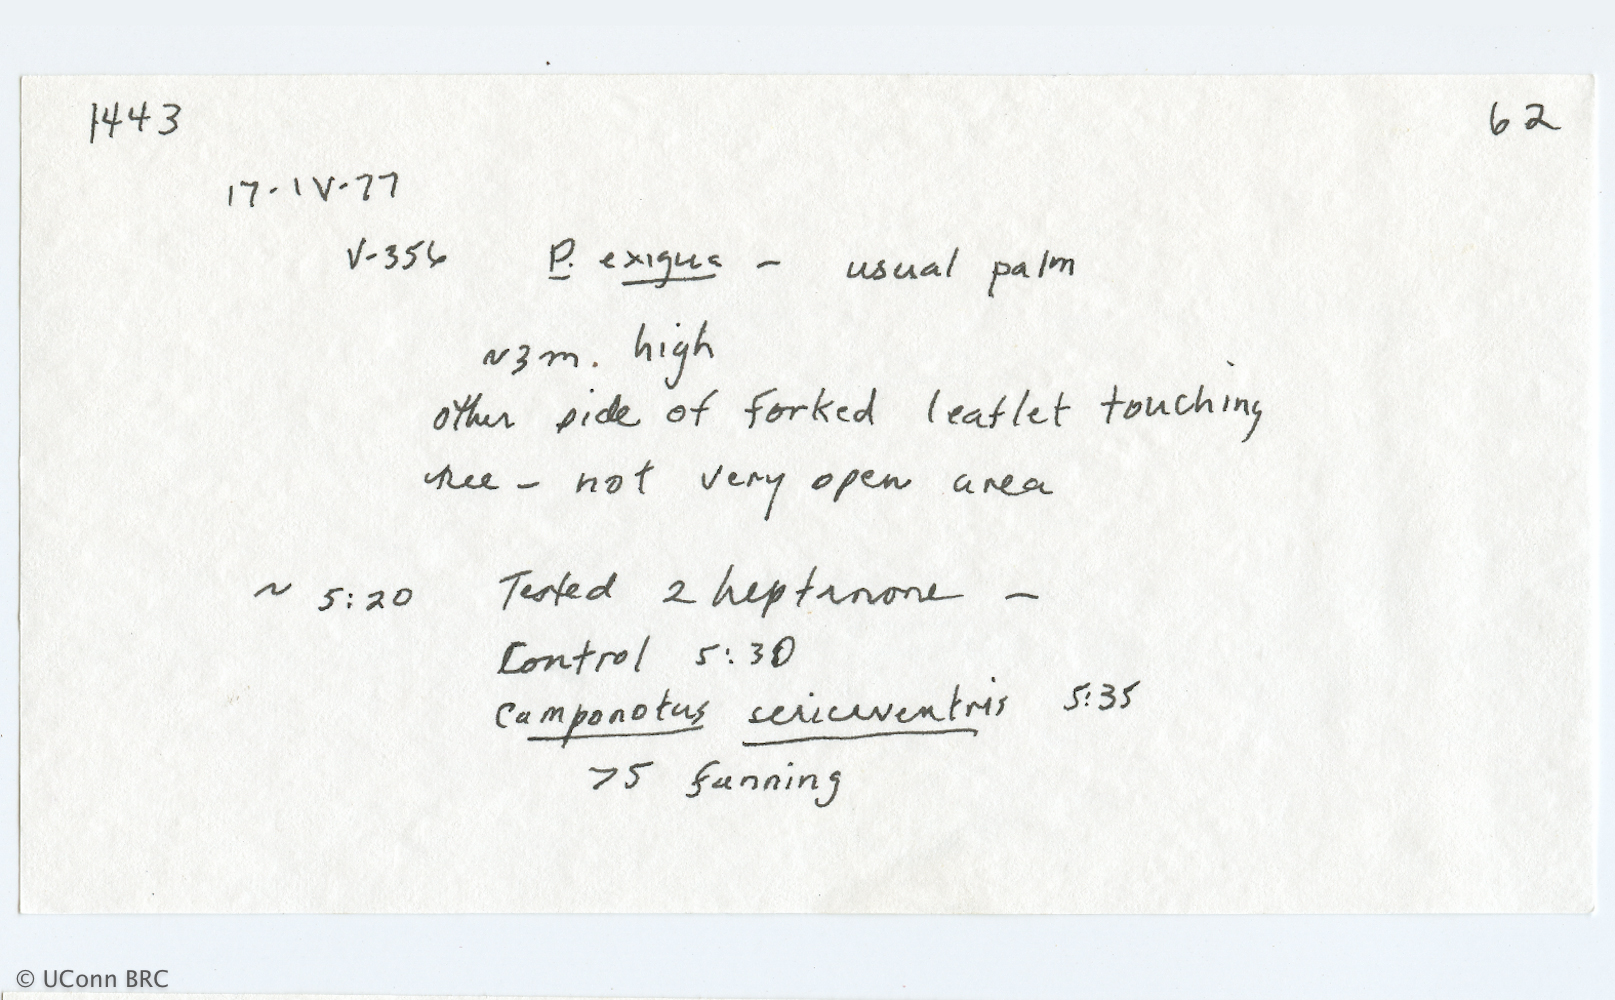 1443 62
17-IV-77
V-356 P. exigua - usual palm
~3m. high
other side of forked leaflet touching
tree - not very open area
~ 5:20 Tested 2 heptanone -
Control 5:30
Camponotus sericeiventris 5:35
>5 fanning
© UConn BRC